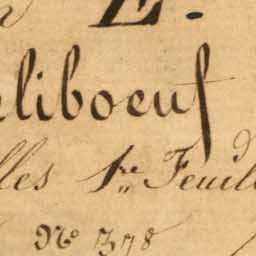 E.
liboeuf
lles 1re Feuil
No 378